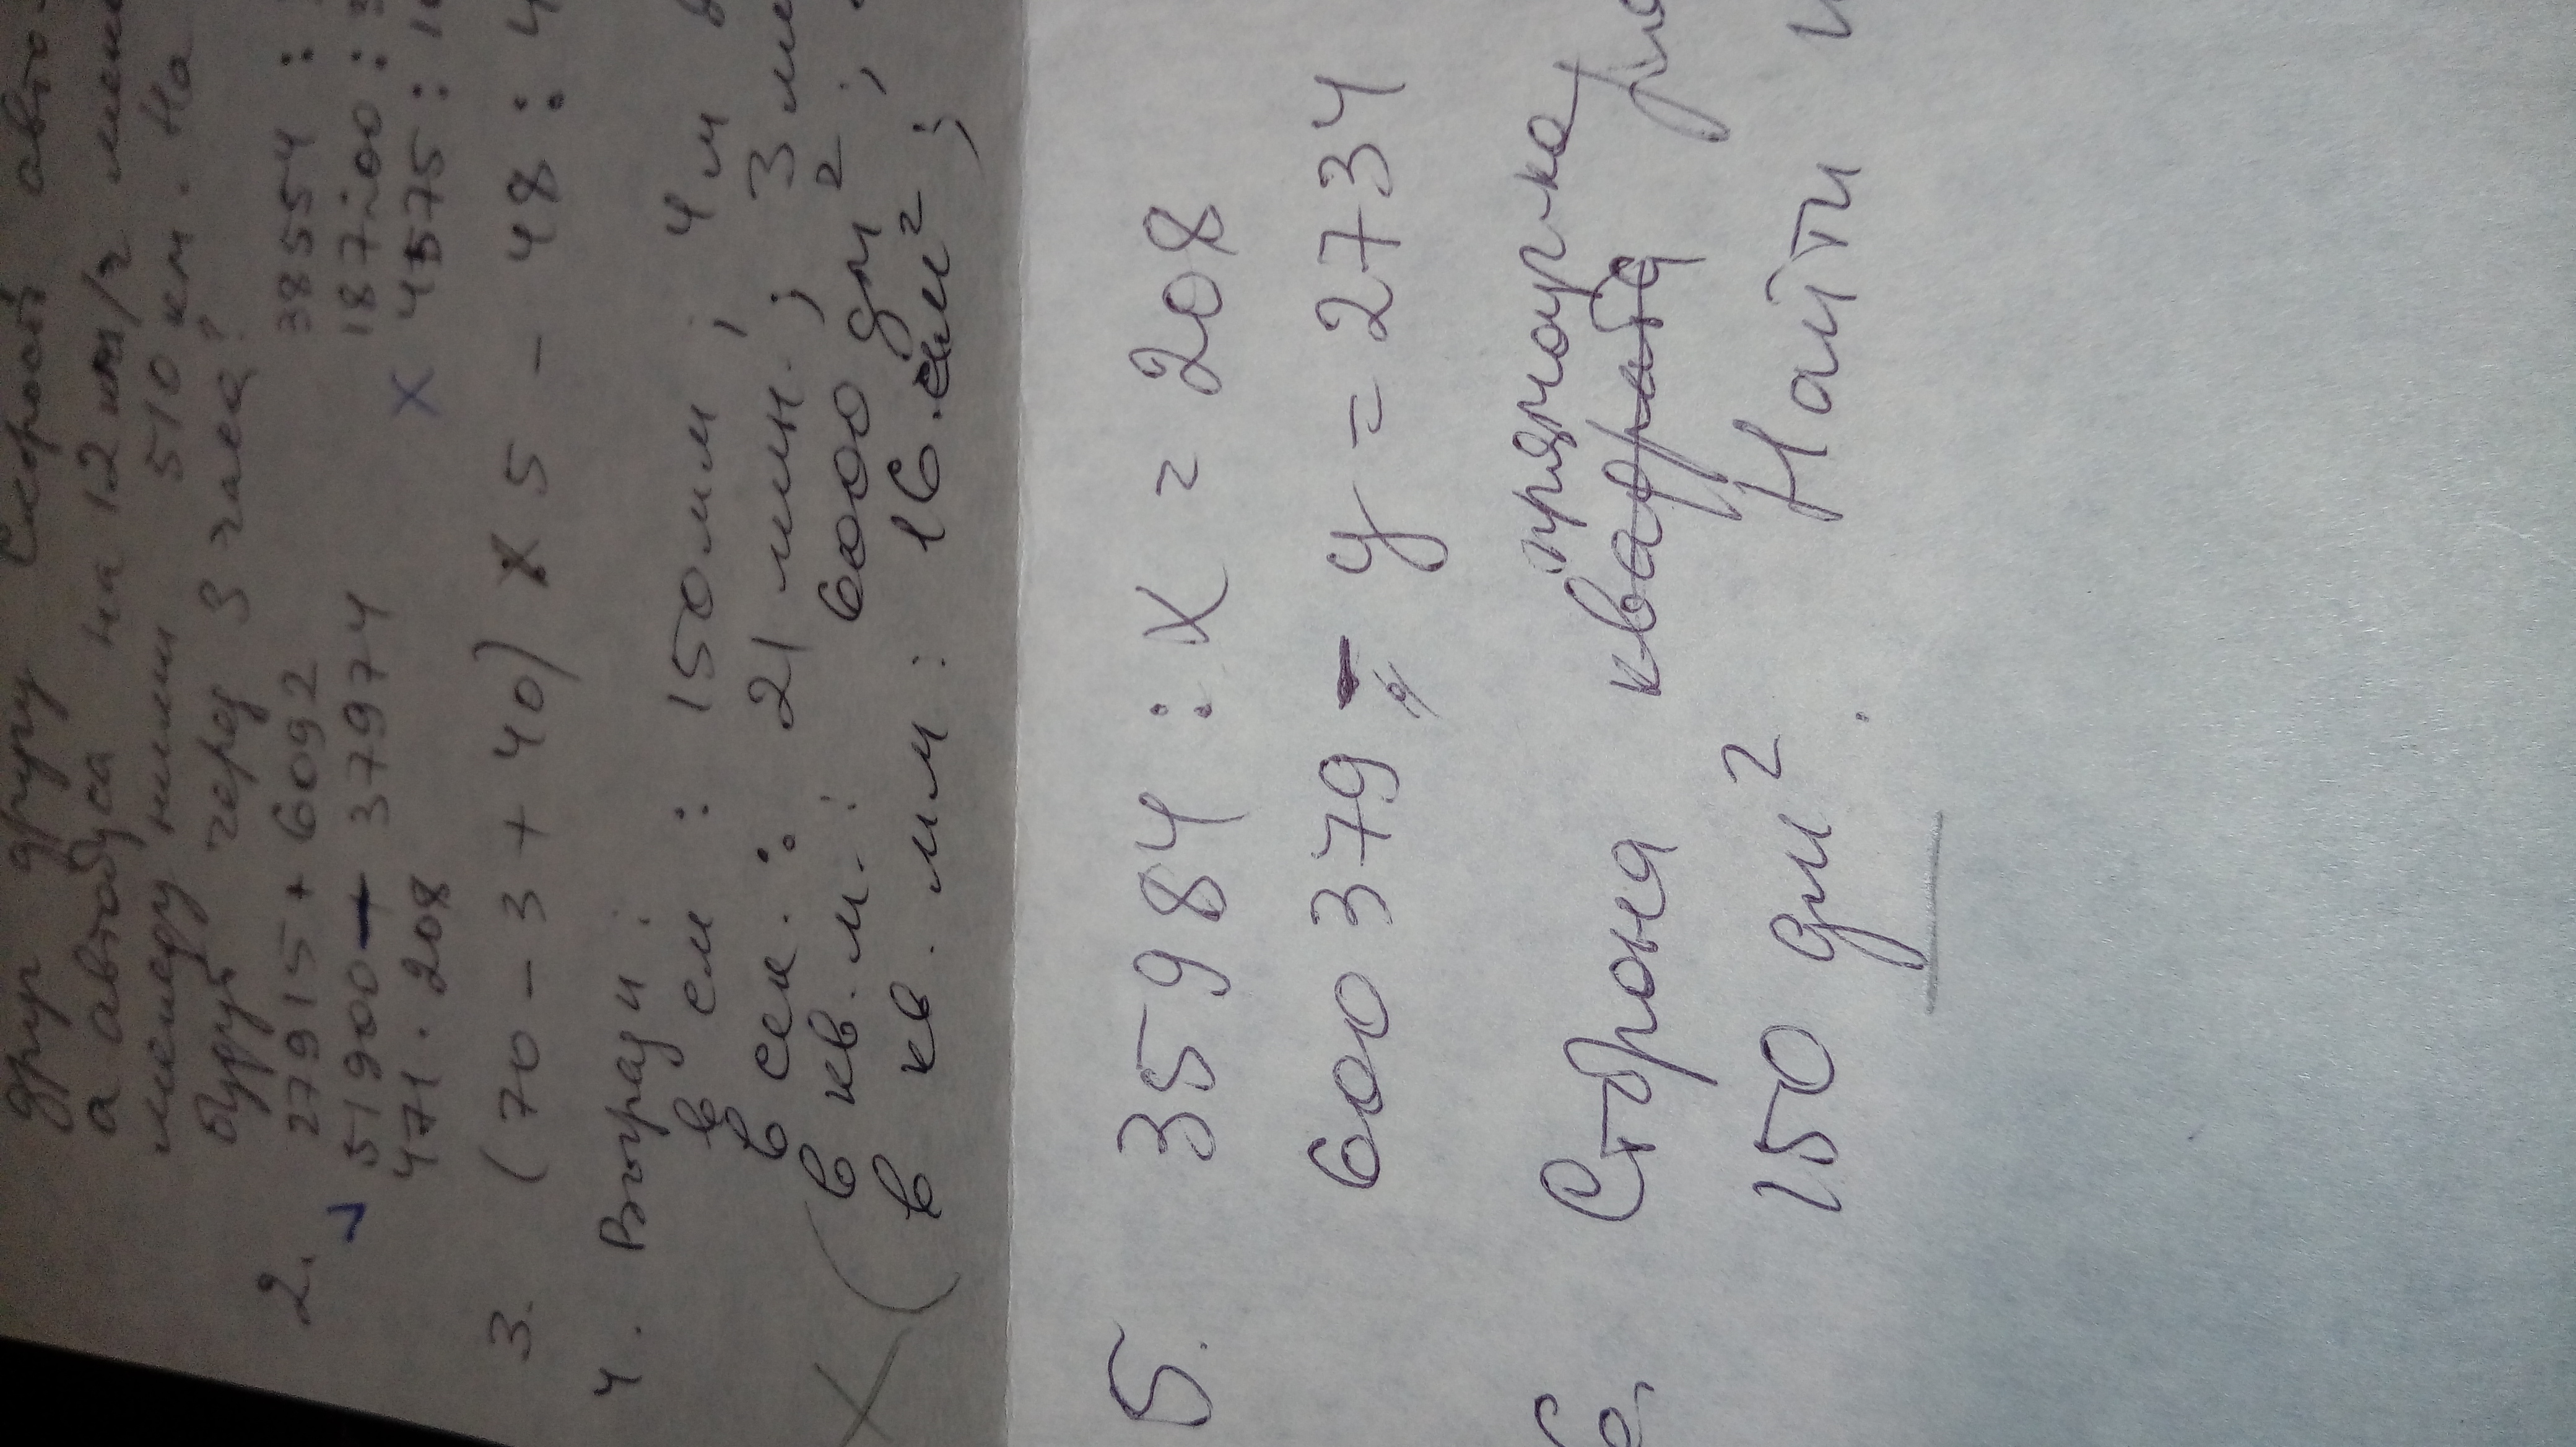 друг другу Скорость авто
а автобуса на 12 км/ч мень
между ними 510 км. На
будут через 3 часа?
2. 27915 + 6092 38554 :
51900 - 37974 187200 :
471 · 208 x 4575 :
3. (70 - 3 + 40) x 5 - 48 : 4
4. Вырази:
в см : 150 мм ; 4 м
в сек. : 21 мин. ; 3 мин
в кв. м. : 6000 дм² ;
в кв. мм : 16 см² ;
5. 35984 : x = 208
600379 - y = 2734
прямоуг-ка
6. Сторона квадрата
150 дм². Найти